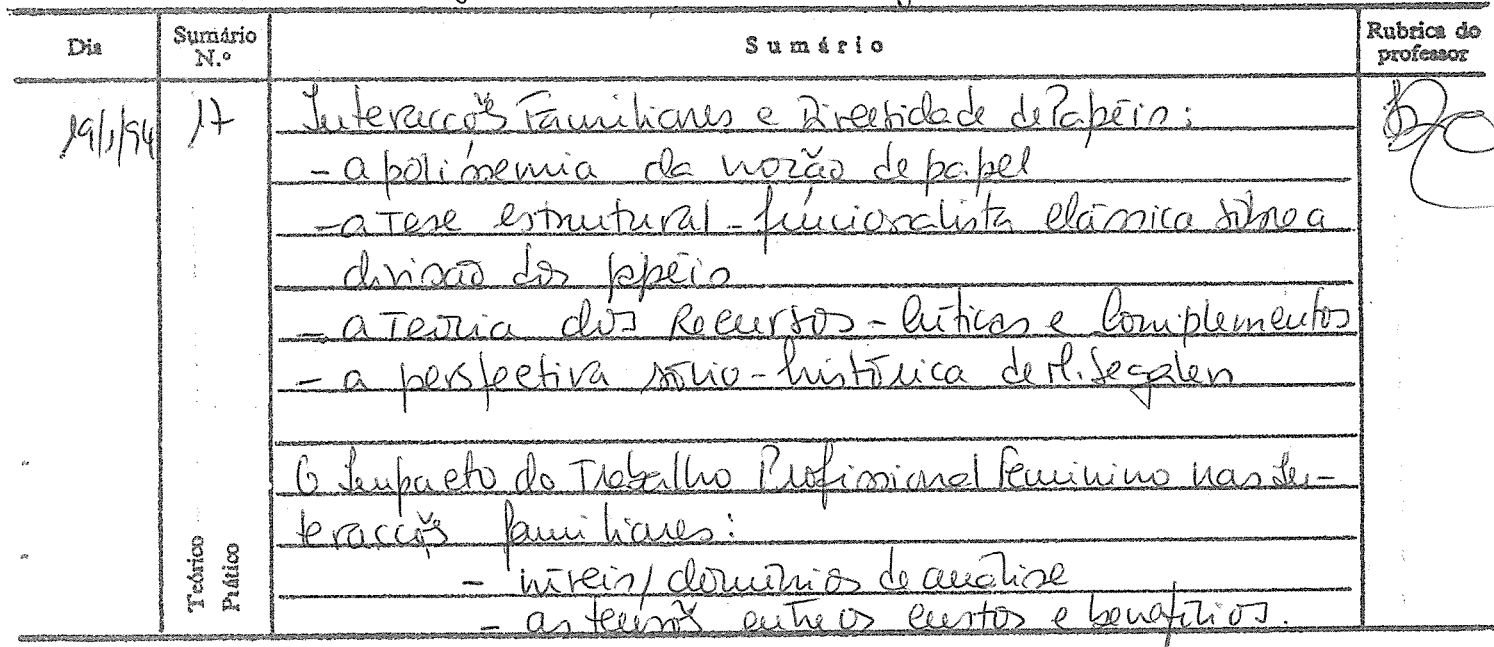 Dia
Sumário N.º
Sumário
Rubrica do professor
19/1/94
17
Interacções Familiares e Diversidade de Papéis:
- a polissemia da noção de papel
- a Tese estrutural-funcionalista clássica sobre a
divisão dos papéis
- a Teoria dos Recursos - Críticas e Complementos
- a perspectiva sócio-histórica de M. Segalen
O Impacto do Trabalho Profissional Feminino nas In-
teracções familiares:
- níveis/domínios de análise
- as tensões entre os custos e benefícios.
Teórico
Prático